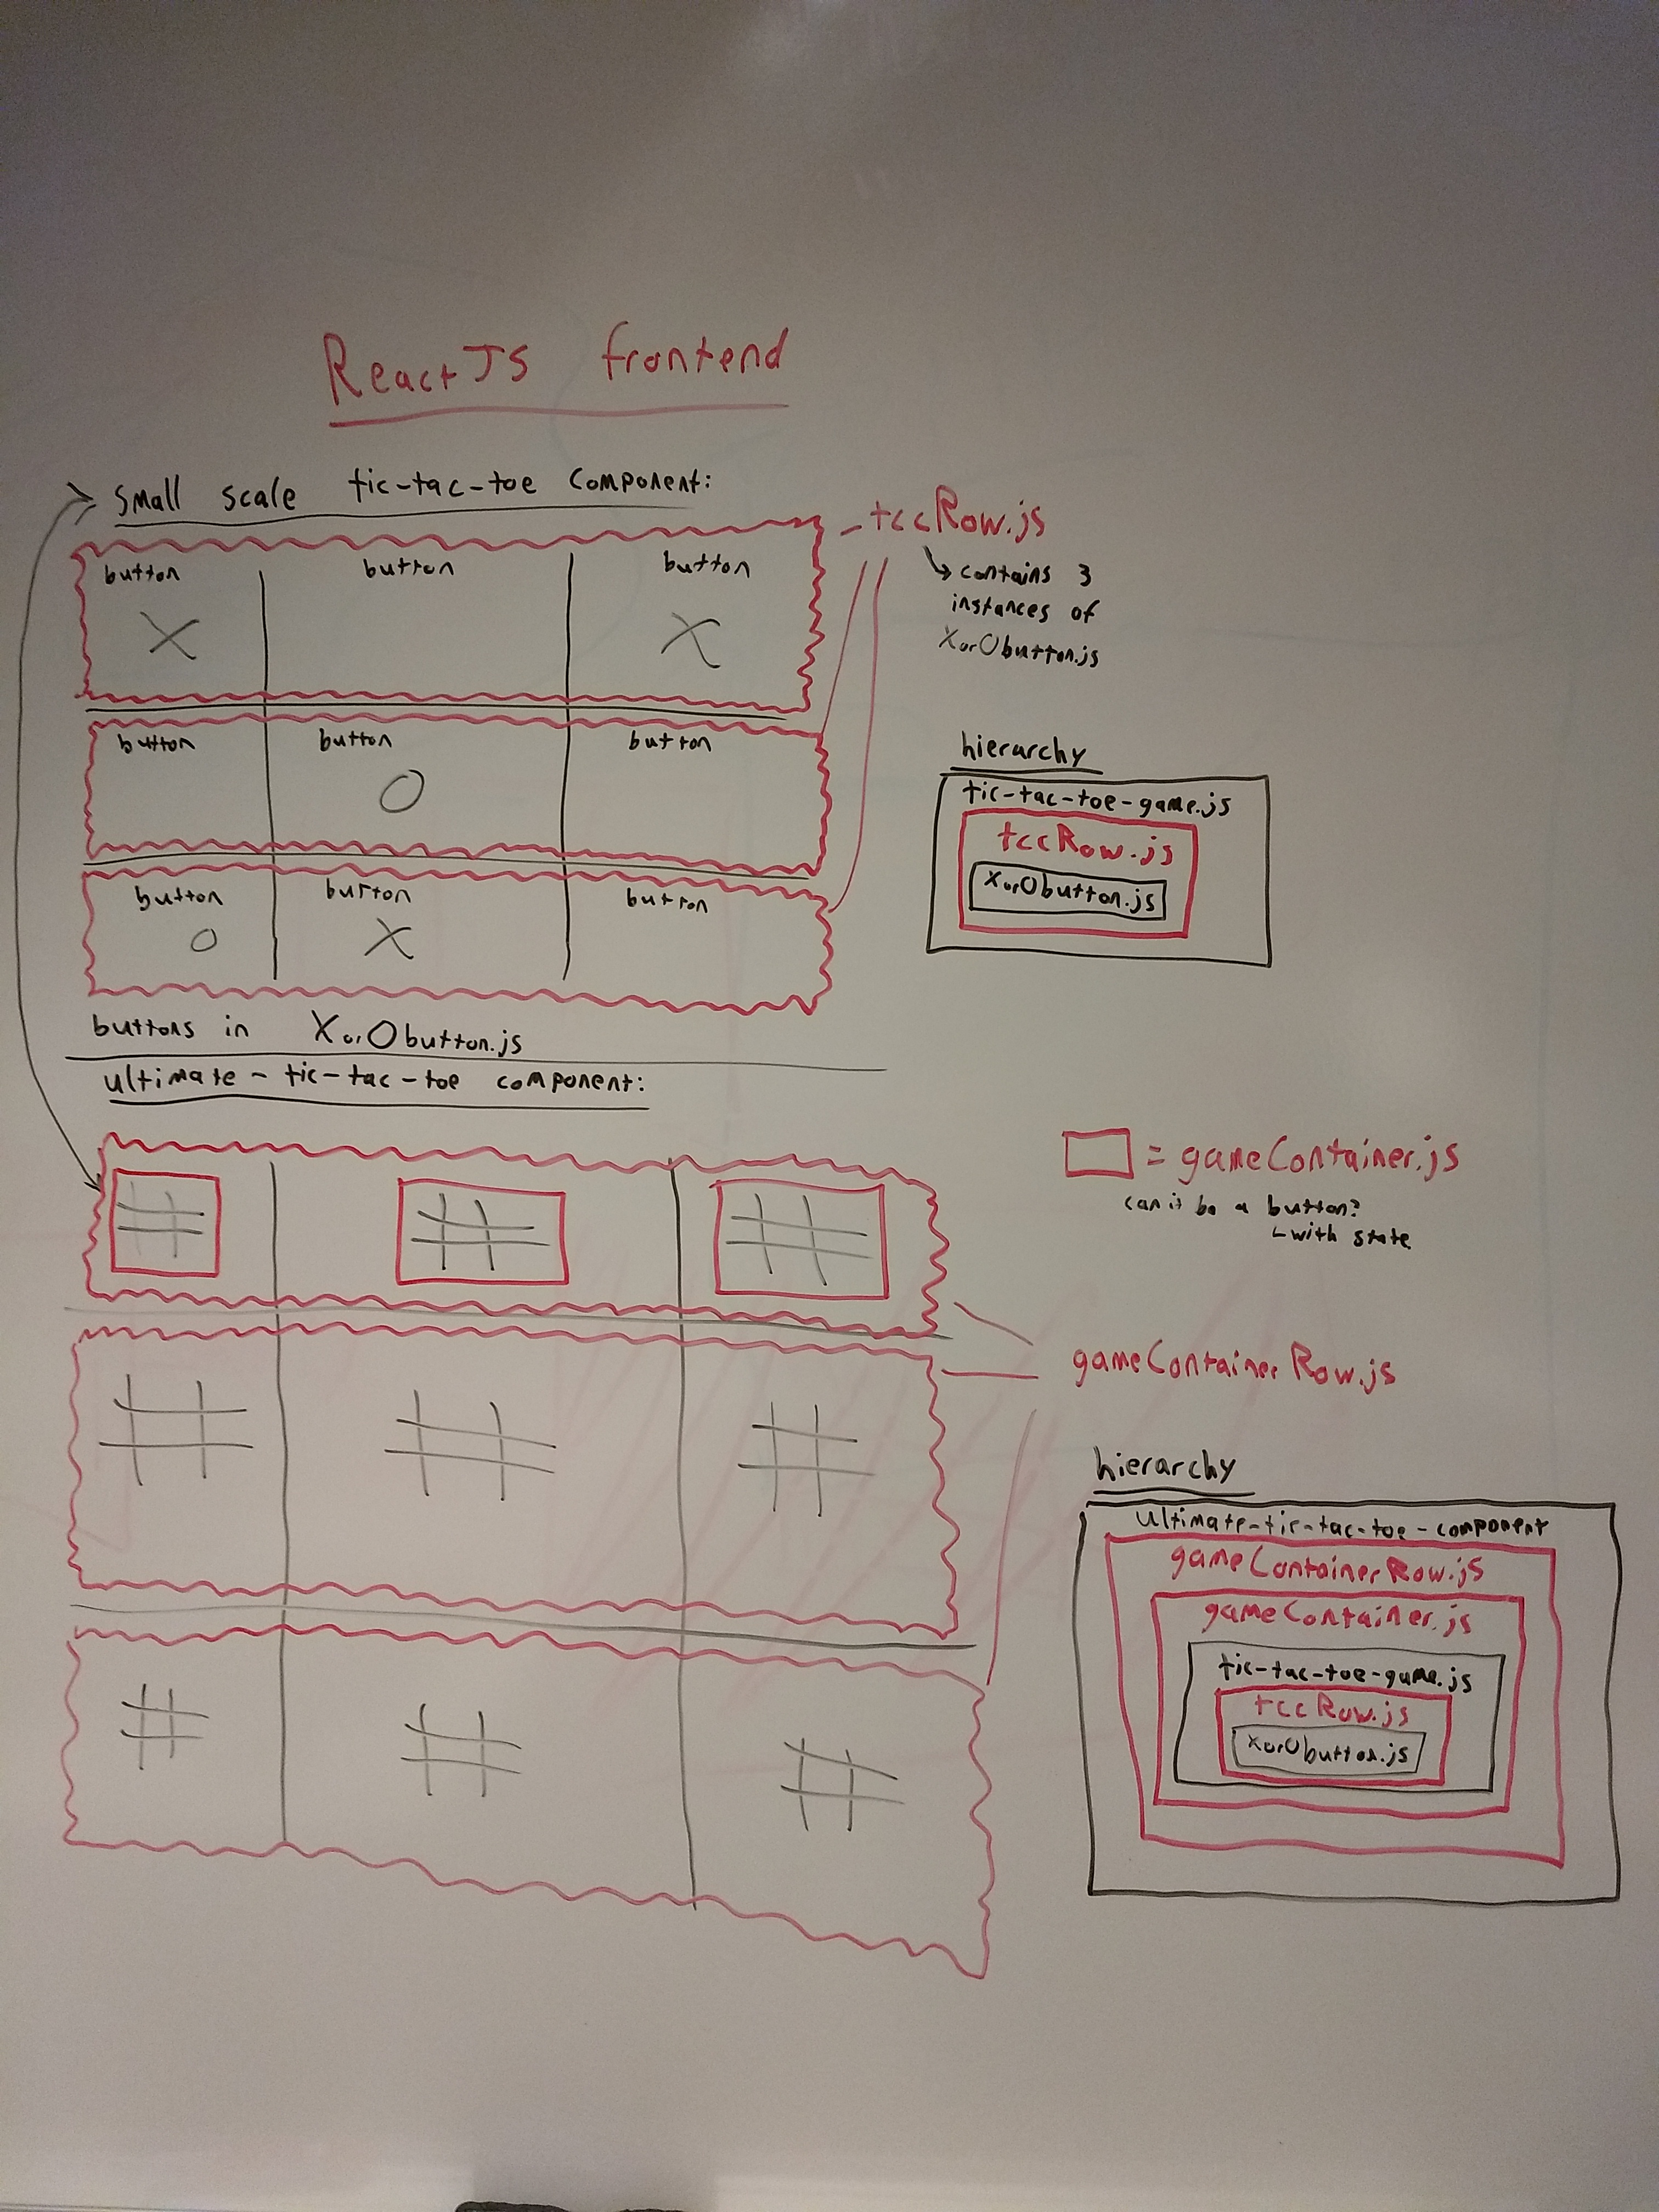 ReactJS frontend
small scale tic-tac-toe component:
button button button
X X
button button button
O
button button button
O X
buttons in XorObutton.js
tccRow.js
contains 3
instances of
XorObutton.js
hierarchy
tic-tac-toe-game.js
tccRow.js
XorObutton.js
ultimate-tic-tac-toe component:
= gameContainer.js
can it be a button?
with state
gameContainerRow.js
hierarchy
ultimate-tic-tac-toe-component
gameContainerRow.js
gameContainer.js
tic-tac-toe-game.js
tccRow.js
XorObutton.js